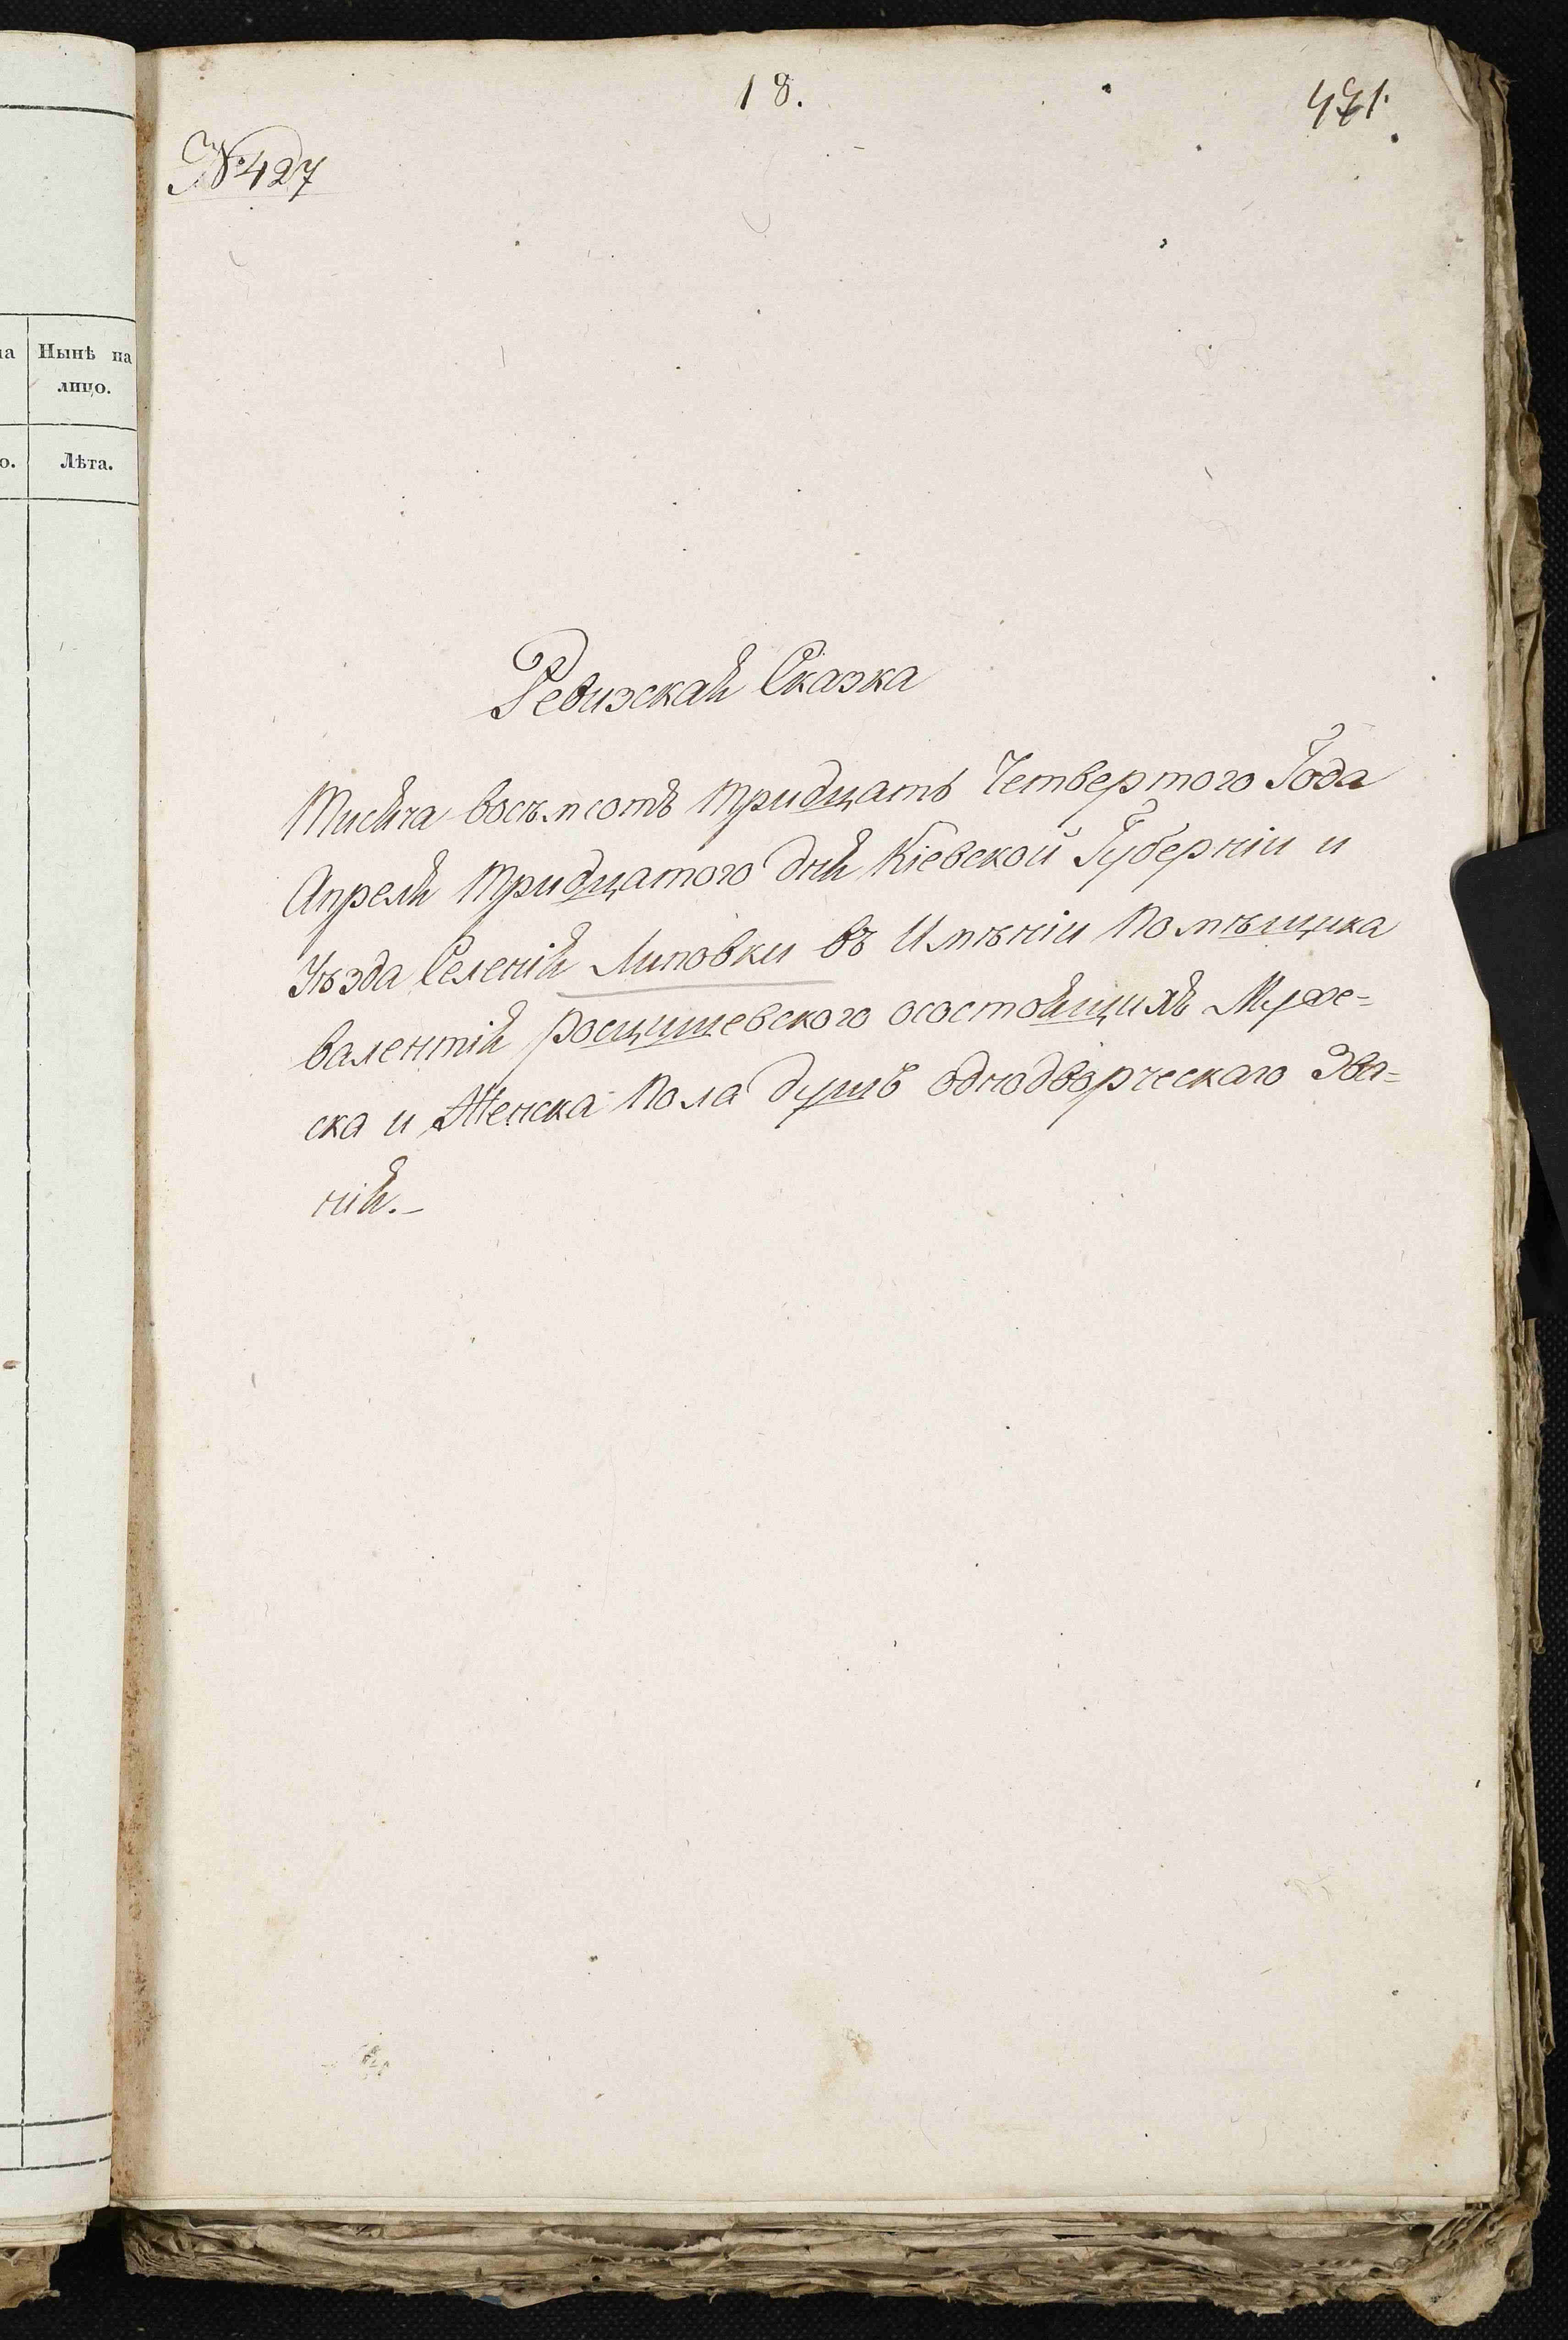 на
Нынѣ на
лицо.
о.
Лѣта.
18.
№ 427
Ревизская Сказка
Тисяча восъмсотъ тридцать Четвертого Года
Апреля тридцатого дня Кіевской Губерніи и
Уѣзда Селенія Липовки въ Имѣніи Помѣщика
Валентія Росцишевского осостоящихъ Муже-
ска и Женска Пола душъ однодворческаго Зва-
нія.-